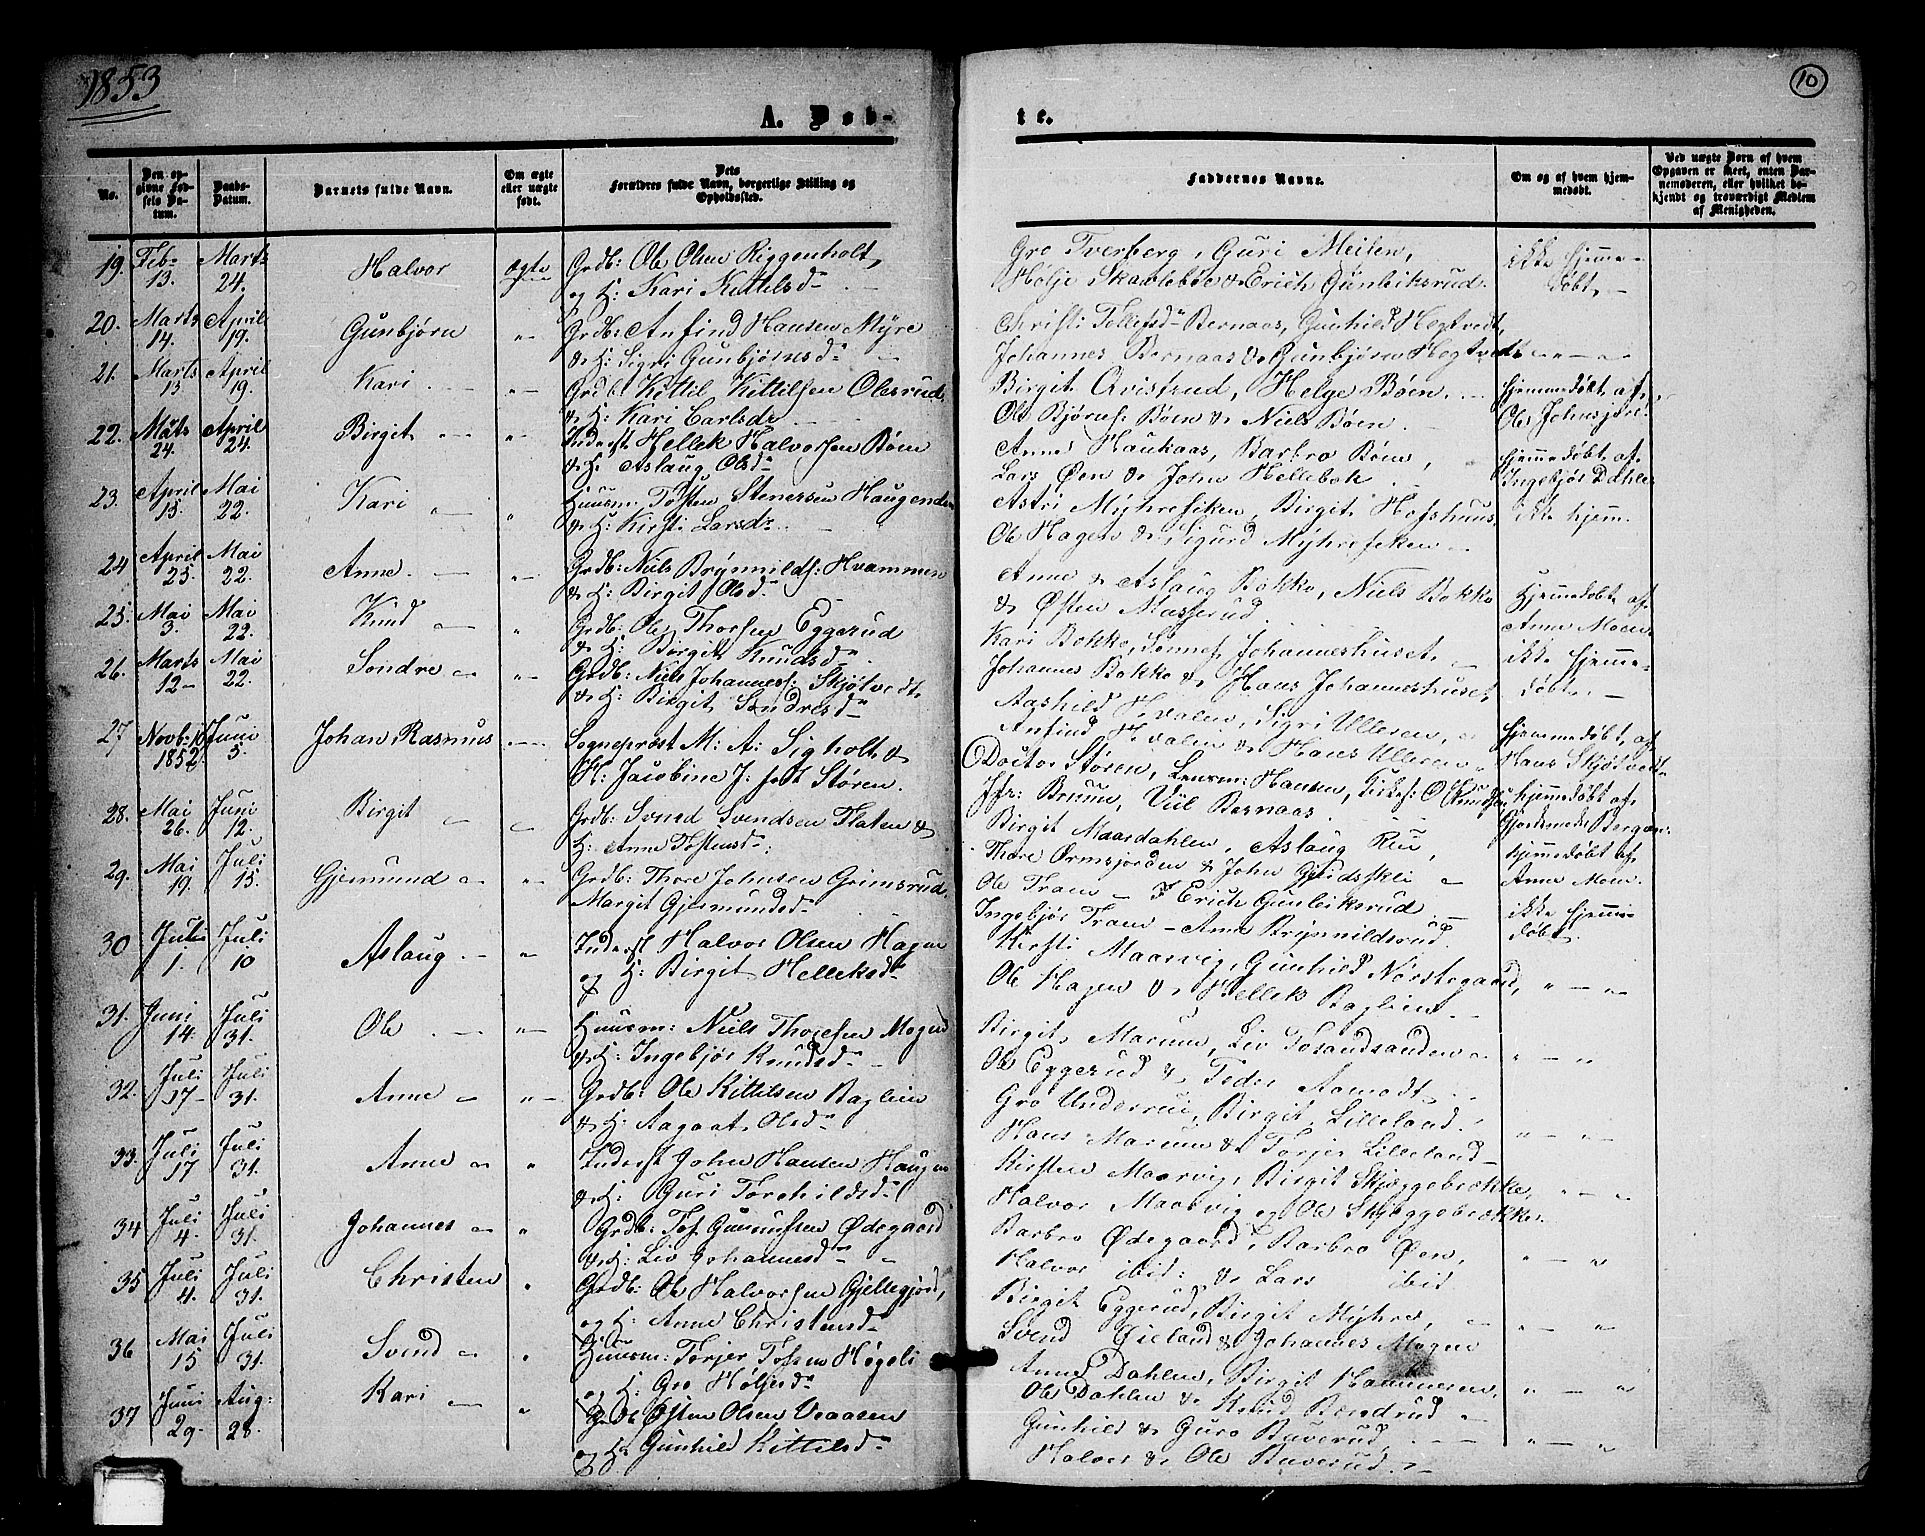 1853
10
A. Døb-
te.
No.
Den op-
givne Fød-
sels Da-
tum.
Daabs-
Datum.
Barnets fulde Navn.
Om ægte
eller uægte
født.
Dets
Forældres fulde Navn, borgerlige Stilling og
Opholdssted.
Faddernes Navne.
Om og af hvem hjem-
medøbt.
Ved uægte Børn af hvem
Opgaven er skeet, enten Bar-
nemoderen, eller hvilket be-
kjendt og troværdigt Medlem
af Menigheden.
19. Feb: 13. Marts 24. Halvor ægte Grdb: Ole Olsen Riggenholt,
og H: Kari Kittelsd.
Gro Tverberg, Guri Meilen,
Holje Skaalebøe & Erich Gunleiksrud.
ikke hjemme-
døbt
20. Marts 14. April 19. Gunbjørn Grdb: Anfind Hansen Myre
& H: Sigri Gunbjørnsd.
Christi Tollefsd. Bernaas, Gunhild Hegtvedt,
Johannes Bernaas & Gunbjørn Hegtvedt
21. Marts 13 April 19. Kari Grdb. Kittil Kittilsen Olesrud,
& H: Kari Carlsd.
Birgit Qvistrud, Helge Bøen.
Ole Bjørnf: Bøen & Niels Bøen
hjemmedøbt af
Ole Johnsjord
22. Marts 24. April 24. Birgit Inderst Hellek Halvorsen Bøen
& H: Aslaug Olsd.
Anne Haukaas, Barbro Bøen,
Lars Øen & John Hellebek
hjemmedøbt af
Ingebjør Dahle
23. April 15. Mai 22. Kari Huusm: Tosten Stenersen Haugen
& H: Kirsti Larsd.
Astri Myhrestken, Birgit Hofshuus,
Ole Hagen & Sigurd Myhrestken
ikke hjem.
24 April 25. Mai 22. Anne. Grdb: Niels Brynnilds: Hvammen
& H: Birgit Olsd.
Anne & Aslaug Bokko, Niels Bokko
& Østen Masserud
Hjemmedøbt af
Anne Moen
25. Mai 3. Mai 22. Knud Grdb: Ole Thorsen Eggerud
& H: Birgit Knudsd.
Kari Bokko, Johanneshuset
Johannes Bokko & Hans Johanneshuset
ikke hjemme-
døbt
26. Marts 12 Mai 22. Sondre Grdb: Niels Johannes: Skjøtvedt
& H: Birgit Sondresd.
Aashild Hvalen, Sigri Ulleren,
Anfind Hvalen & Hans Ulleren
hjemmedøbt af
Hans Skjøtvedt
27 Novb: 10 1852 Juni 5. Johan Rasmus Sogneprest M: A: Sigholt &
H: Jacobine J: født Støren.
Doctor Støren, Lensm: Hansen, Kirkes: O. Knudsen
Jfr: Bruun, Viil Bernaas
hjemmedøbt af
Gjordemoder Bergan
28. Mai 26. Juni 12. Birgit Grdb: Svend Svendsen Flaten &
H: Anne Tostensd.
Birgit Maardahlen, Aslaug Rui,
Thore Ørmsjorden & John Gjordsskli
hjemmedøbt af
Anne Moen
29. Mai 19. Juli 15. Gjermund Grdb: Thore Johnsen Grimsrud,
Margit Gjermundsd.
Ole Tram Erich Gunleiksrud
Ingebjør Tram Anne Brynnildsrud.
ikke hjemme-
døbt
30 Juli 1. Juli 10 Aslaug Inderst Halvor Olsen Hagen
og H: Birgit Helleksd.
Kirsti Maarvig, Gunhild Nørstegaard,
Ole Hagen & Hellek Baglien
31. Juni 14. Juli 31. Ole Huusm: Niels Thoresen Mogen
& H: Ingebjør Knudsd.
Birgit Marum, Liv Tosandsanden
Ole Eggerud & Peder Aamodt
32. Juli 17 Juli 31. Anne Grdb: Ole Kittilsen Baglien
& H: Aagaat Olsd.
Gro Underrui, Birgit Lilleland
Hans Marum & Torjer Lilleland
33. Juli 17 Juli 31. Anne Inderst John Hansen Haugen
& H: Guri Torchildsd.
Kirsten Maarvig, Birgit Skjeggebrekke,
Halvor Maarvig og Ole Skjeggebrekke.
34 Juli 4. Juli 31. Johannes Grdb: Tof Gunnufsen Ødegaard
& H: Liv Johannesd.
Barbro Ødegaard, Barbro Øen,
Halvor ibid: & Lars ibid
35 Juli 4. Juli 31. Christen Grdb: Ole Halvorsen Gjellegjord,
og H: Anne Christensd.
Birgit Eggerud, Birgit Myhre,
Svend Øieland & Johannes Mogen
36 Mai 15 Juli 31. Svend Huusm: Torjer Tofsen Høgeli
og H: Gro Holjesd.
Anne Dahlen, Birgit Hammeren,
Ole Dahlen & Knud Bendrud
37 Juni 29. Aug: 28. Kari Grdb Østen Olsen Vraasen
og H: Gunhild Kittilsd.
Gunhild & Guro Buverud
Halvor & Ole Buverud.